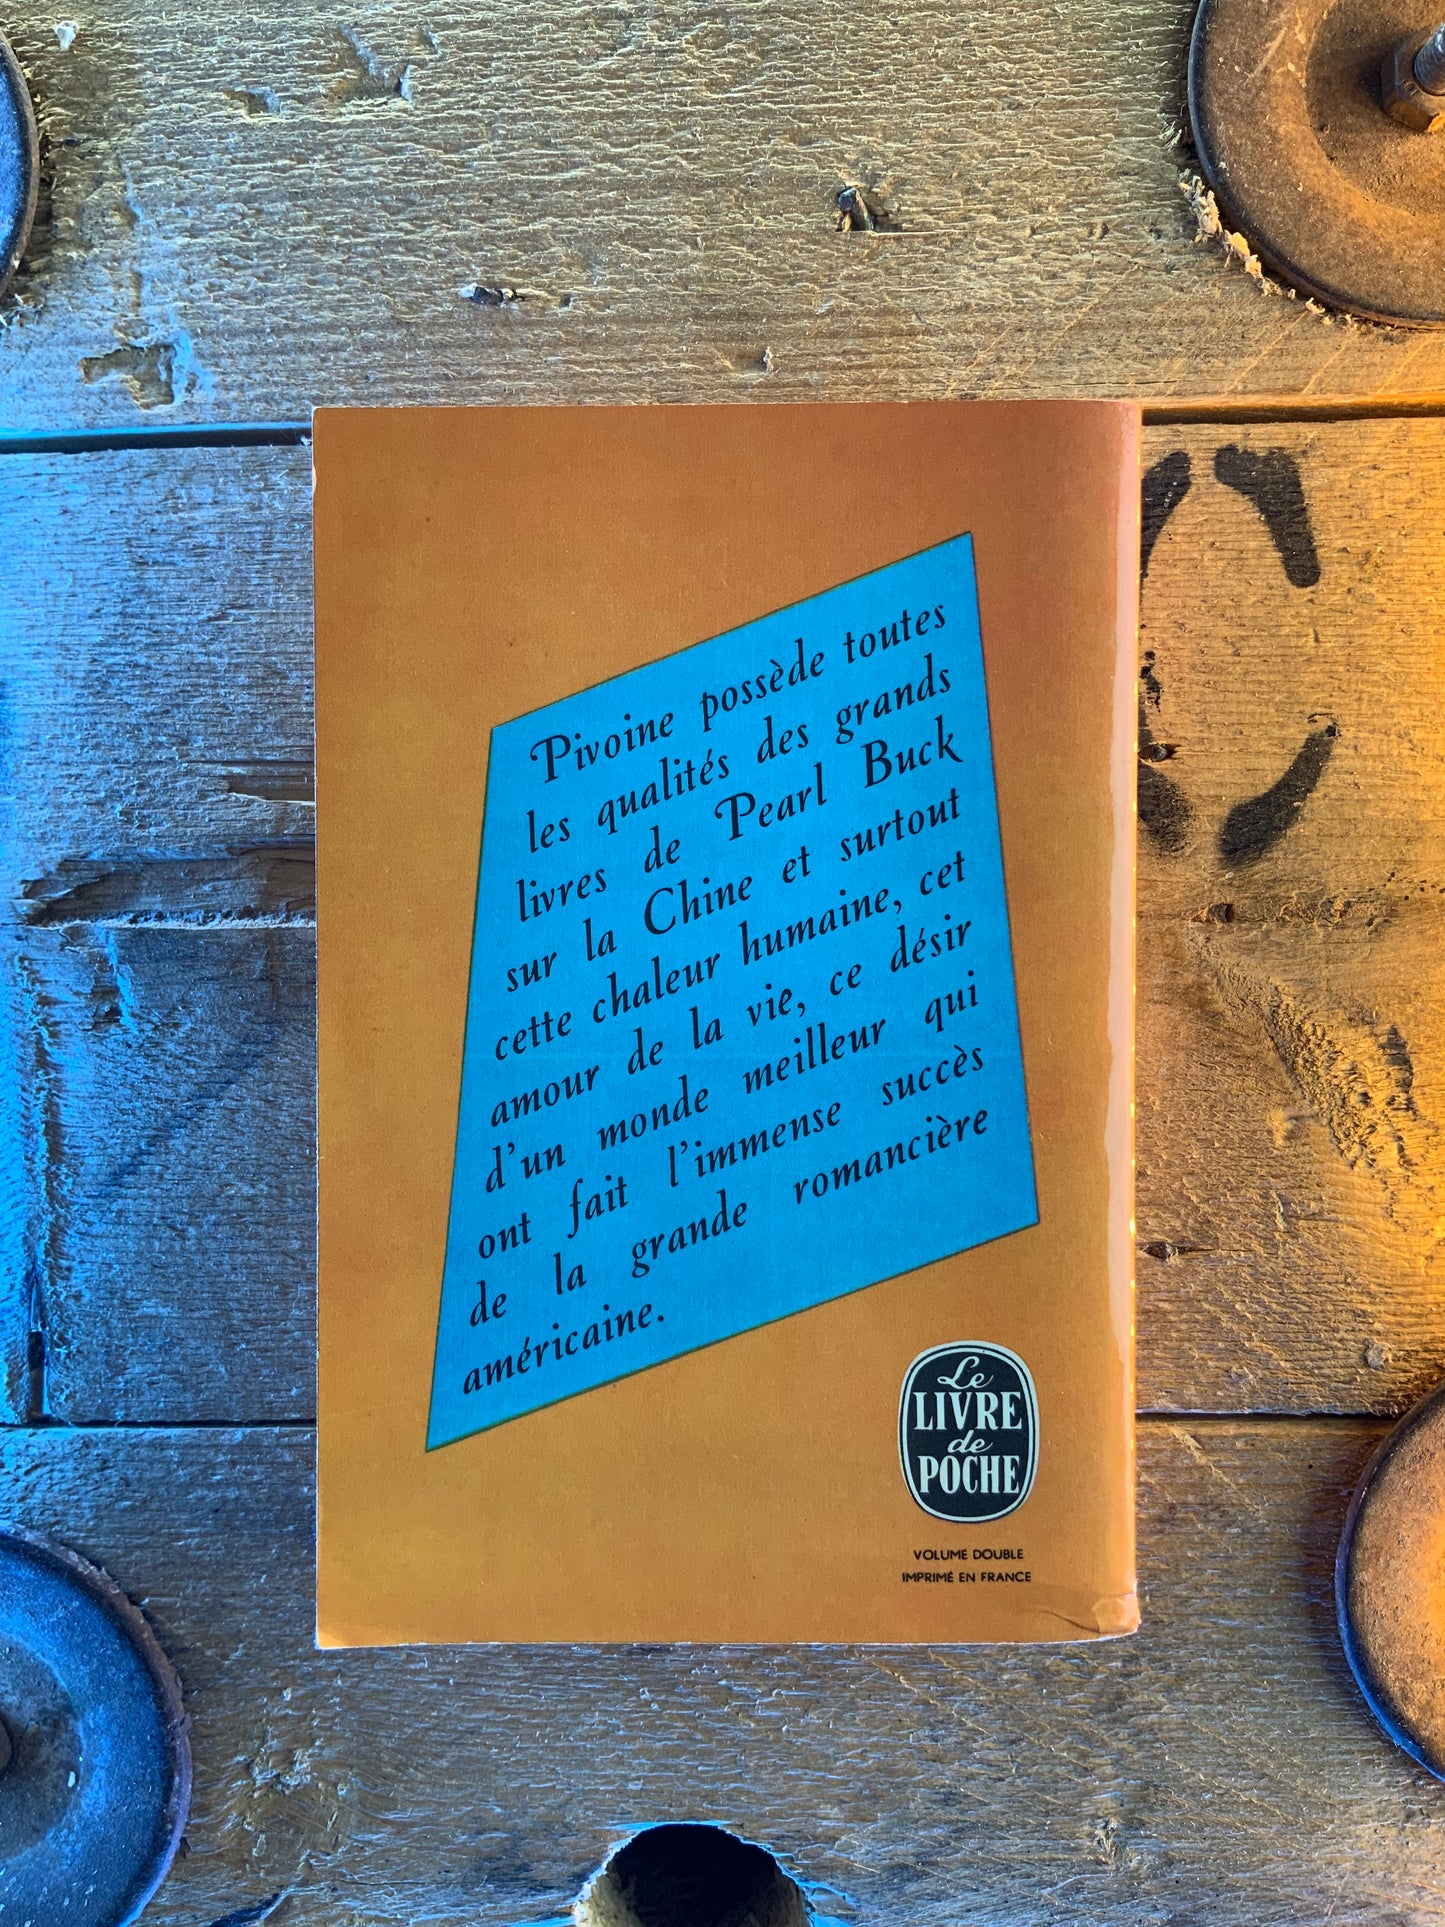 Pivoine possède toutes
les qualités des grands
livres de Pearl Buck
sur la Chine et surtout
cette chaleur humaine, cet
amour de la vie, ce désir
d'un monde meilleur qui
ont fait l'immense succès
de la grande romancière
américaine.
Le
LIVRE
de
POCHE
VOLUME DOUBLE
IMPRIMÉ EN FRANCE